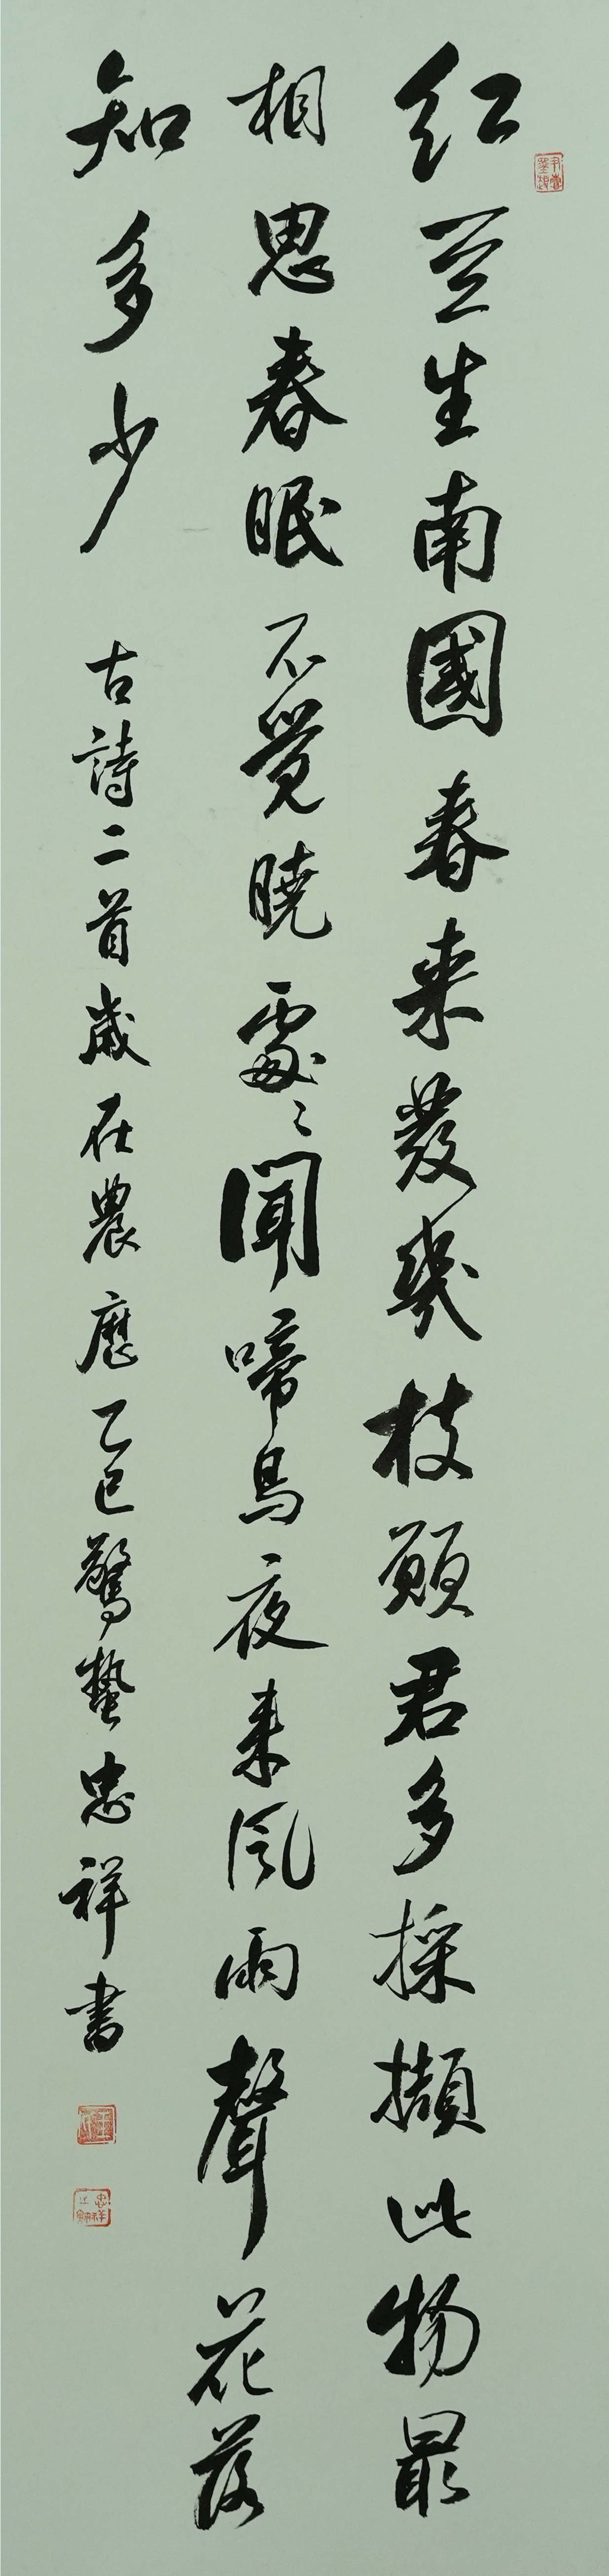 红豆生南國春来發幾枝願君多採擷此物最
相思春眠不覺曉處〻聞啼鳥夜来風雨聲花落
知多少
古詩二首歲在農曆乙巳驚蟄忠祥書